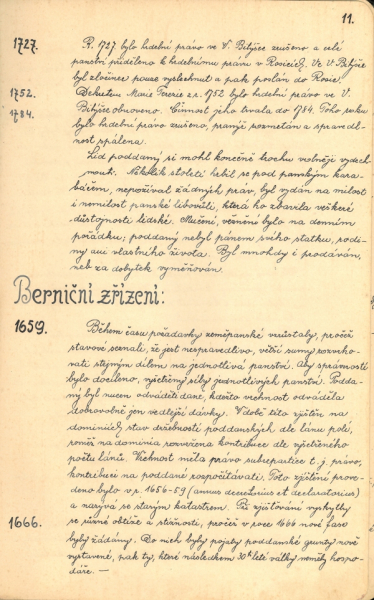 11.
1727. R. 1727 bylo hrdelní právo ve V. Bítýšce zrušeno a celé
panství přiděleno k hrdelnímu právu v Rosicích. Ve V. Bítýšce
byl zločinec pouze vyslechnut a pak poslán do Rosic.
1752. Dekretem Marie Terezie z r. 1752 bylo hrdelní právo ve V.
1784. Bítýšce obnoveno. Činnost jeho trvala do 1784. Toho roku
bylo hrdelní právo zrušeno, pranýř rozmetán a spraved
lnost spálena.
Lid poddaný si mohl konečně trochu volněji vydech
nouti. Několik století hrbil se pod panským kara
báčem, nepožíval žádných práv, byl vydán na milost
i nemilost panské libovůli, která ho zbavila veškeré
důstojnosti lidské. Mučení, věšnění bylo na denním
pořádku; poddaný nebyl pánem svého statku, rodi
ny ani vlastního života. Byl mnohdy i prodáván,
neb za dobytek vyměňován.
Berniční zřízení:
1659. Během času požadavky zeměpanské vzrůstaly, pročež
stavové seznali, že jest nespravedlivo, větší sumy rozvrho
vati stejným dílem na jednotlivá panství. Aby správnosti
bylo docíleno, vyšetřeny síly jednotlivých panství. Podda
ný byl nucen odváděti daně, kdežto vrchnost odváděla
dobrovolně jen vedlejší dávky. V době této zjištěn na
dominiích stav držebnosti poddanských dle lánů polí,
načež na dominia rozvržena kontribuce dle vyšetřeného
počtu lánů. Vrchnost měla právo subrepartice t. j. právo,
kontribuci na poddané rozpočítávati. Toto zjištění prove
deno bylo v r. 1656-59 (annus decretorius et declaratorius)
a nazývá se starým katastrem. Při zjišťování vyskytly
1666. se různé obtíže a stížnosti, pročež v roce 1666 nové fase
byly žádány. Do nich byly pojaty poddanské grunty nově
vystavené, pak ty, které následkem 30ti leté války neměly hospo
dáře. —